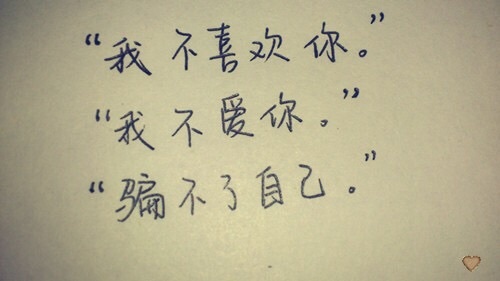 “我不喜欢你。”
“我不爱你。”
“骗不了自己。”